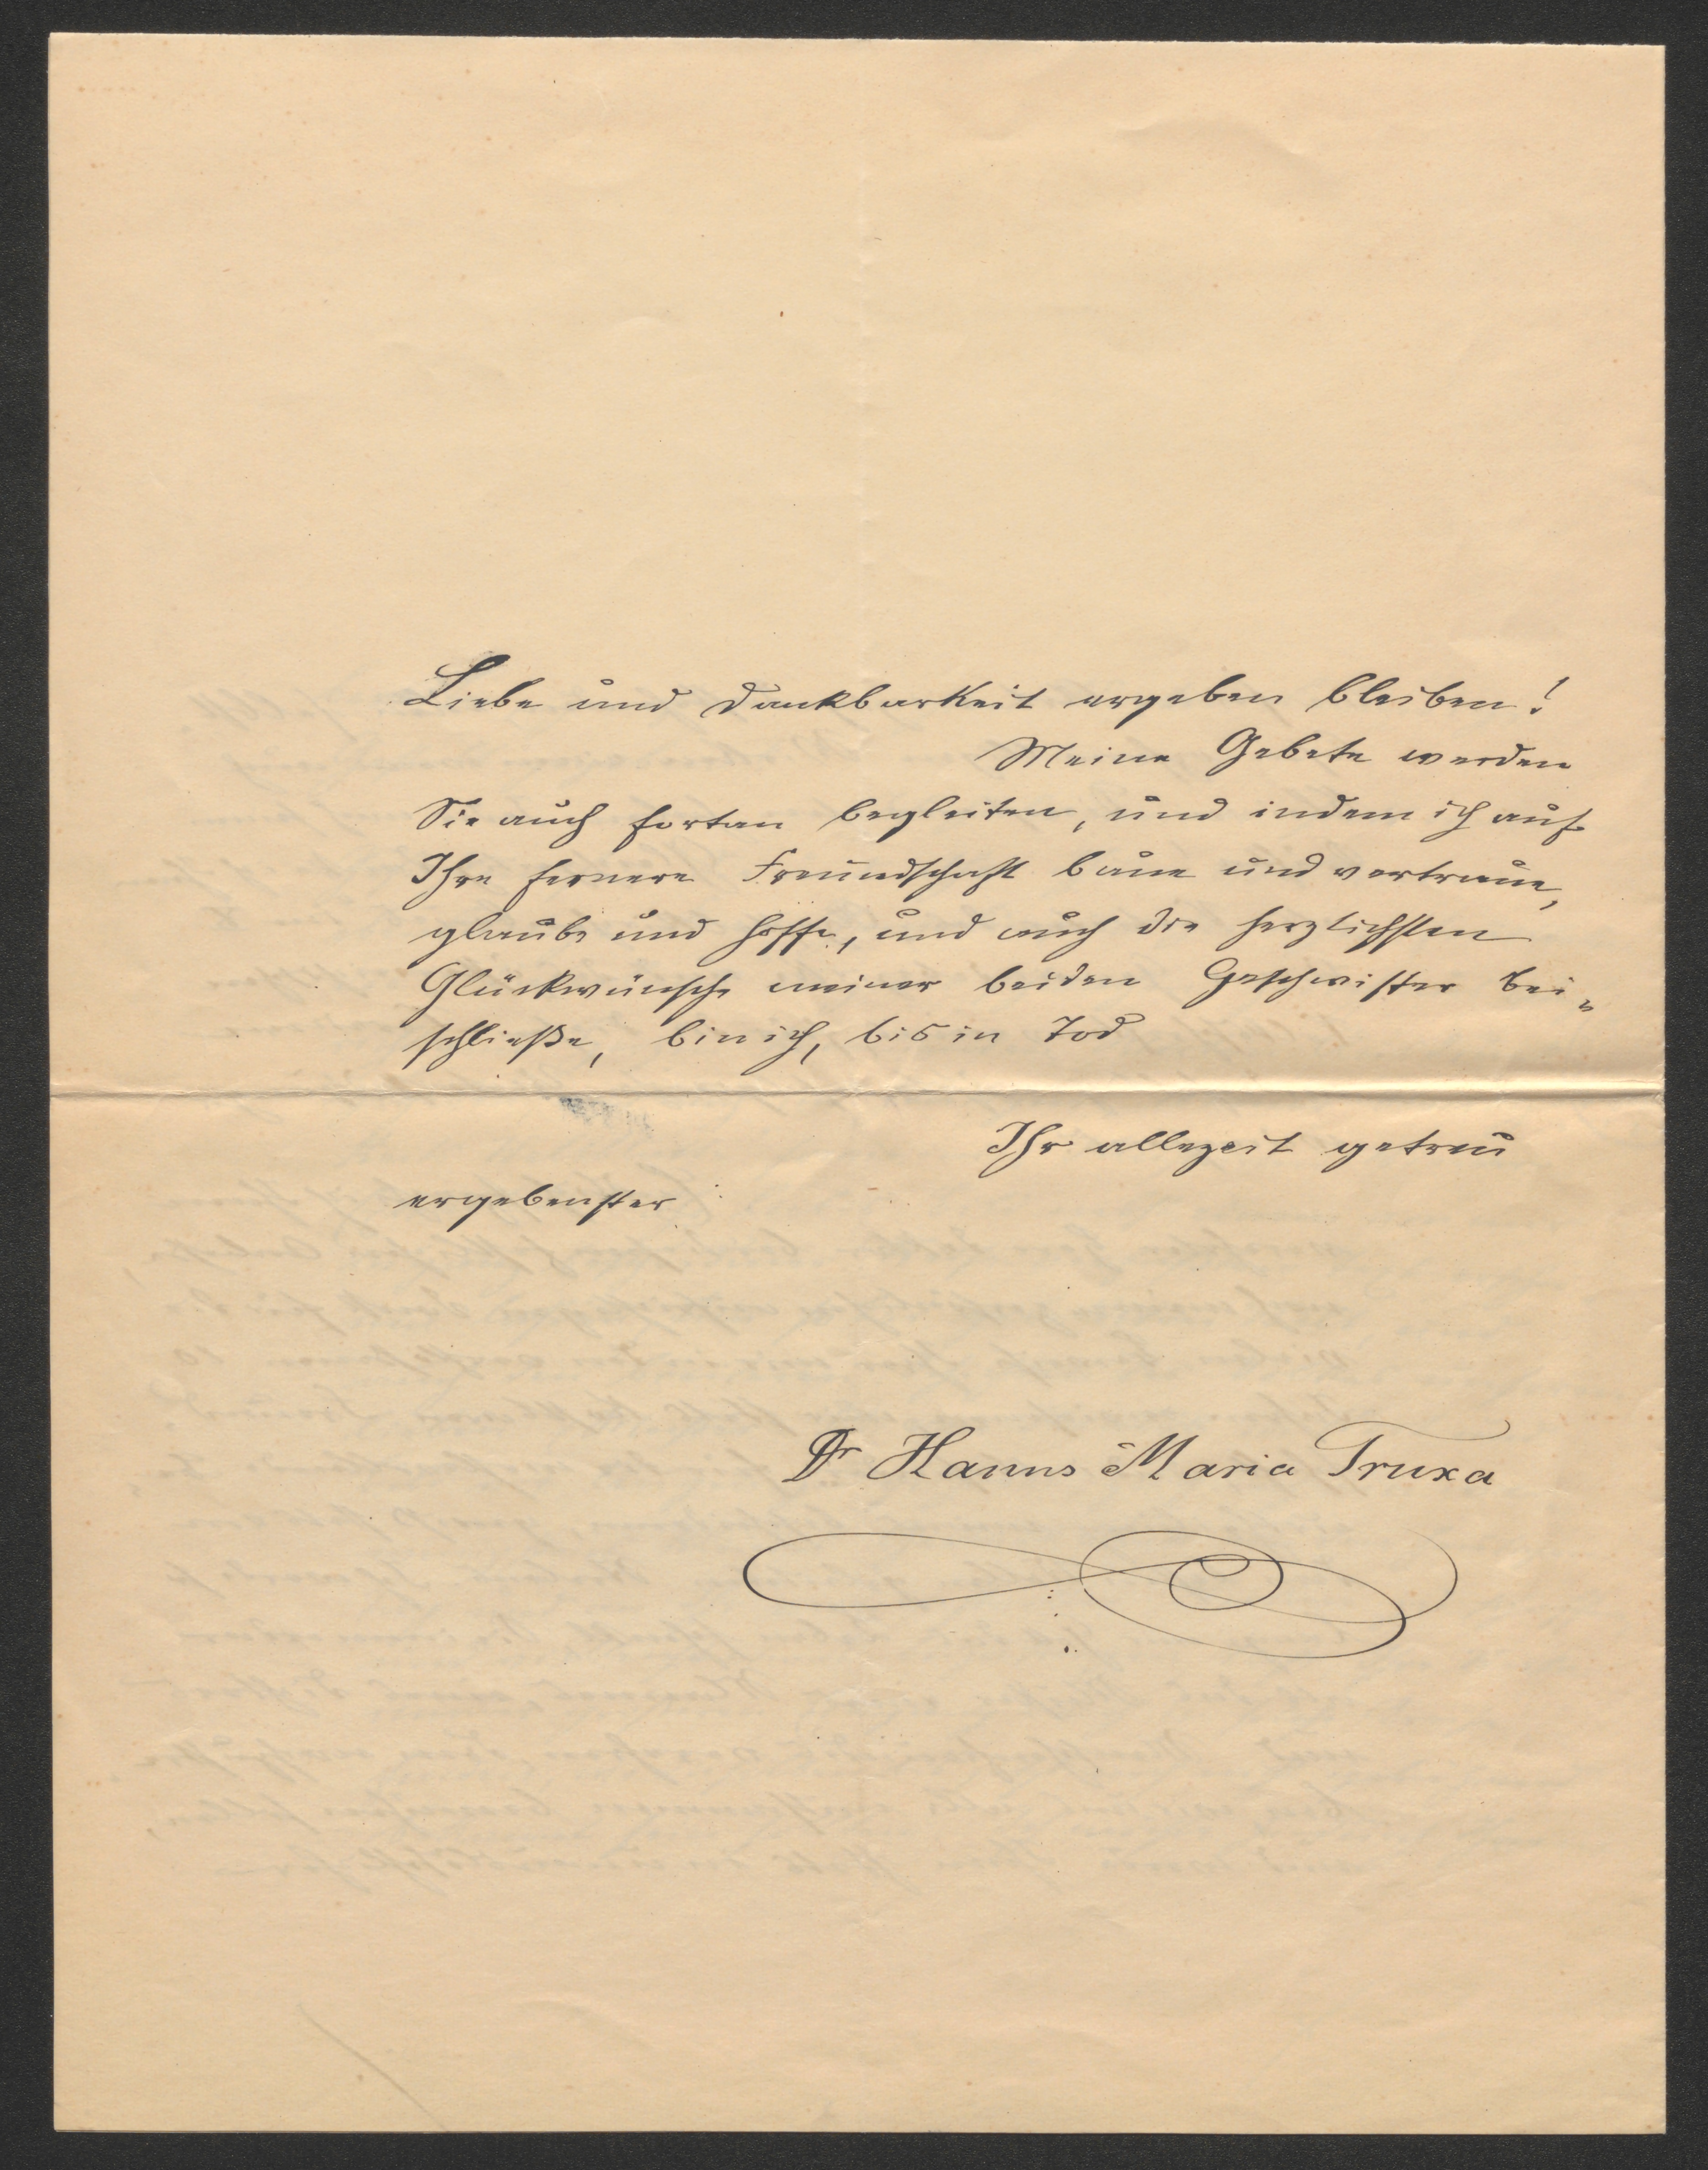 Liebe und Dankbarkeit ergeben bleiben!
Meine Gebete werden
Sie auch fortan begleiten, und indem ich auf
Ihre fernere Freundschaft baue und vertraue,
glaube und hoffe, und auch die herzlichsten
Glückwünsche meiner beiden Geschwister bei=
schließe, bin ich, bis in Tod
Ihr allezeit getreu
ergebenster
Dr Hanns Maria Truxa